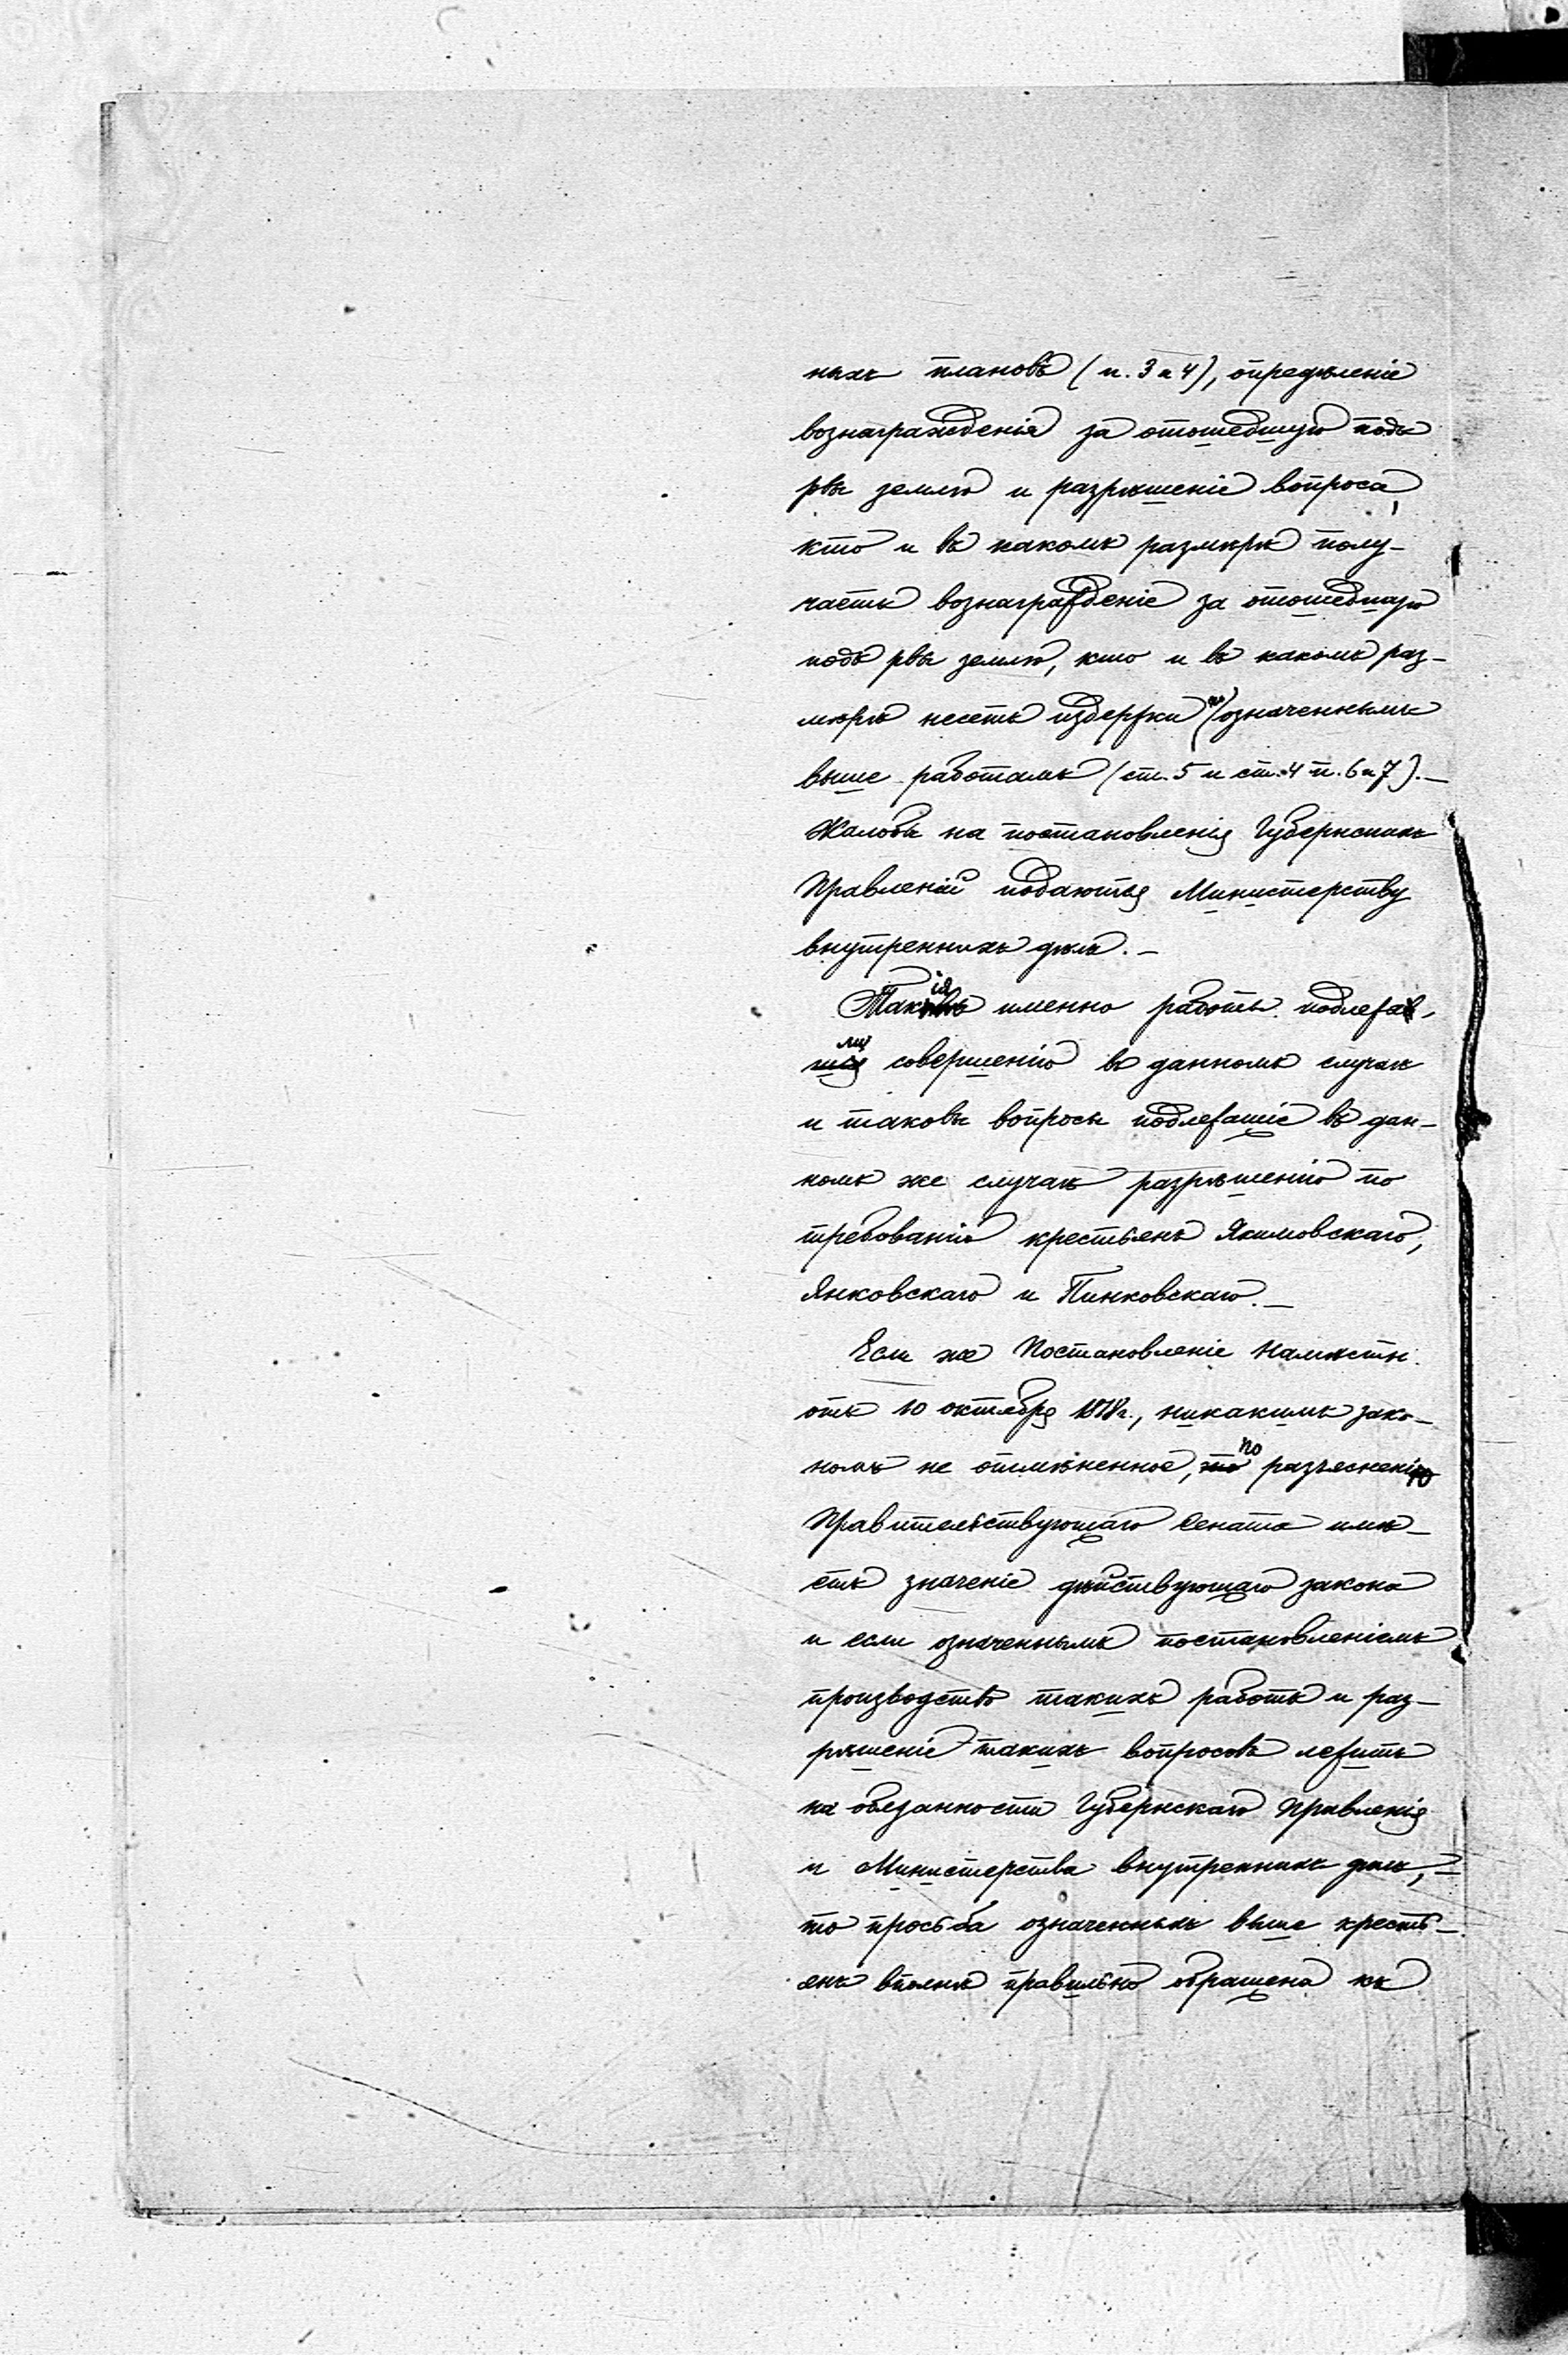 ныхъ плановъ (п. 3 и 4), опредѣленіе
вознагражденія за отошедшую подъ
рвы землю и разрѣшеніе вопроса,
кто и въ какомъ размѣрѣ полу-
чаетъ вознагражденіе за отошедшую
подъ рвы землю, кто и въ какомъ раз-
мѣрѣ несетъ издержки по означеннымъ
выше работамъ (ст. 5 и ст. 4 п. 6 и 7). —
Жалобы на постановленія Губернскихъ
Правленій подаются Министерству
внутреннихъ дѣлъ. —
Такія именно работы подлежа-
ли совершенію въ данномъ случаѣ
и таковы вопросы подлежащіе въ дан-
номъ же случаѣ разрѣшенію по
требованію крестьянъ Якимовскаго,
Янковскаго и Пинковскаго. —
Если же Постановленіе Намѣстн.
отъ 10 октября 1818 г., никакимъ зако-
номъ не отмѣненное, по разъясненію
Правительствующаго Сената имѣ-
етъ значеніе дѣйствующаго закона
и если означеннымъ постановленіемъ
производство такихъ работъ и раз-
рѣшеніе такихъ вопросовъ лежитъ
на обязанности Губернскаго Правленія
и Министерства внутреннихъ дѣлъ, —
то просьба означенныхъ выше кресть-
янъ вполнѣ правильно обращена къ